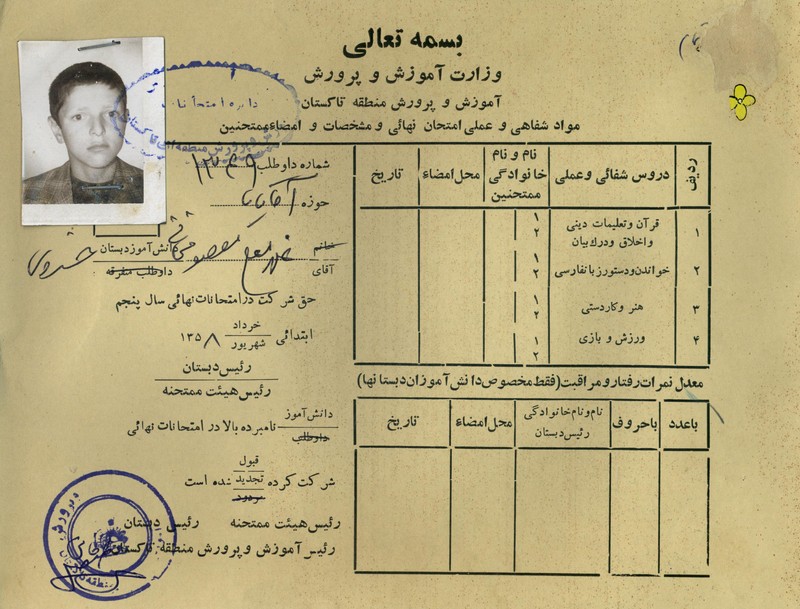 بسمه تعالی
وزارت آموزش و پرورش
آموزش و پرورش منطقه تاکستان
مواد شفاهی و عملی امتحان نهائی و مشخصات و امضاء ممتحنین
دایره امتحانات
ردیف
دروس شفاهی و عملی
نام و نام خانوادگی ممتحنین
محل امضاء
تاریخ
۱
قرآن و تعلیمات دینی
و اخلاق و درك بیان
۱
۲
۲
خواندن و دستور زبان فارسی
۱
۲
۳
هنر و کاردستی
۱
۲
۴
ورزش و بازی
۱
۲
معدل نمرات رفتار و مراقبت (فقط مخصوص دانش آموزان دبستانها)
با عدد
با حروف
نام و نام خانوادگی
رئیس دبستان
محل امضاء
تاریخ
شماره داوطلب
حوزه
خانم
آقای
دانش آموز دبستان
داوطلب متفرقه
حق شرکت در امتحانات نهائی سال پنجم
ابتدائی خرداد
شهریور
۱۳۵۸
رئیس دبستان
رئیس هیئت ممتحنه
دانش آموز
داوطلب
نامبرده بالا در امتحانات نهائی
قبول
شرکت کرده تجدید شده است
مردود
رئیس هیئت ممتحنه رئیس دبستان
رئیس آموزش و پرورش منطقه تاکستان